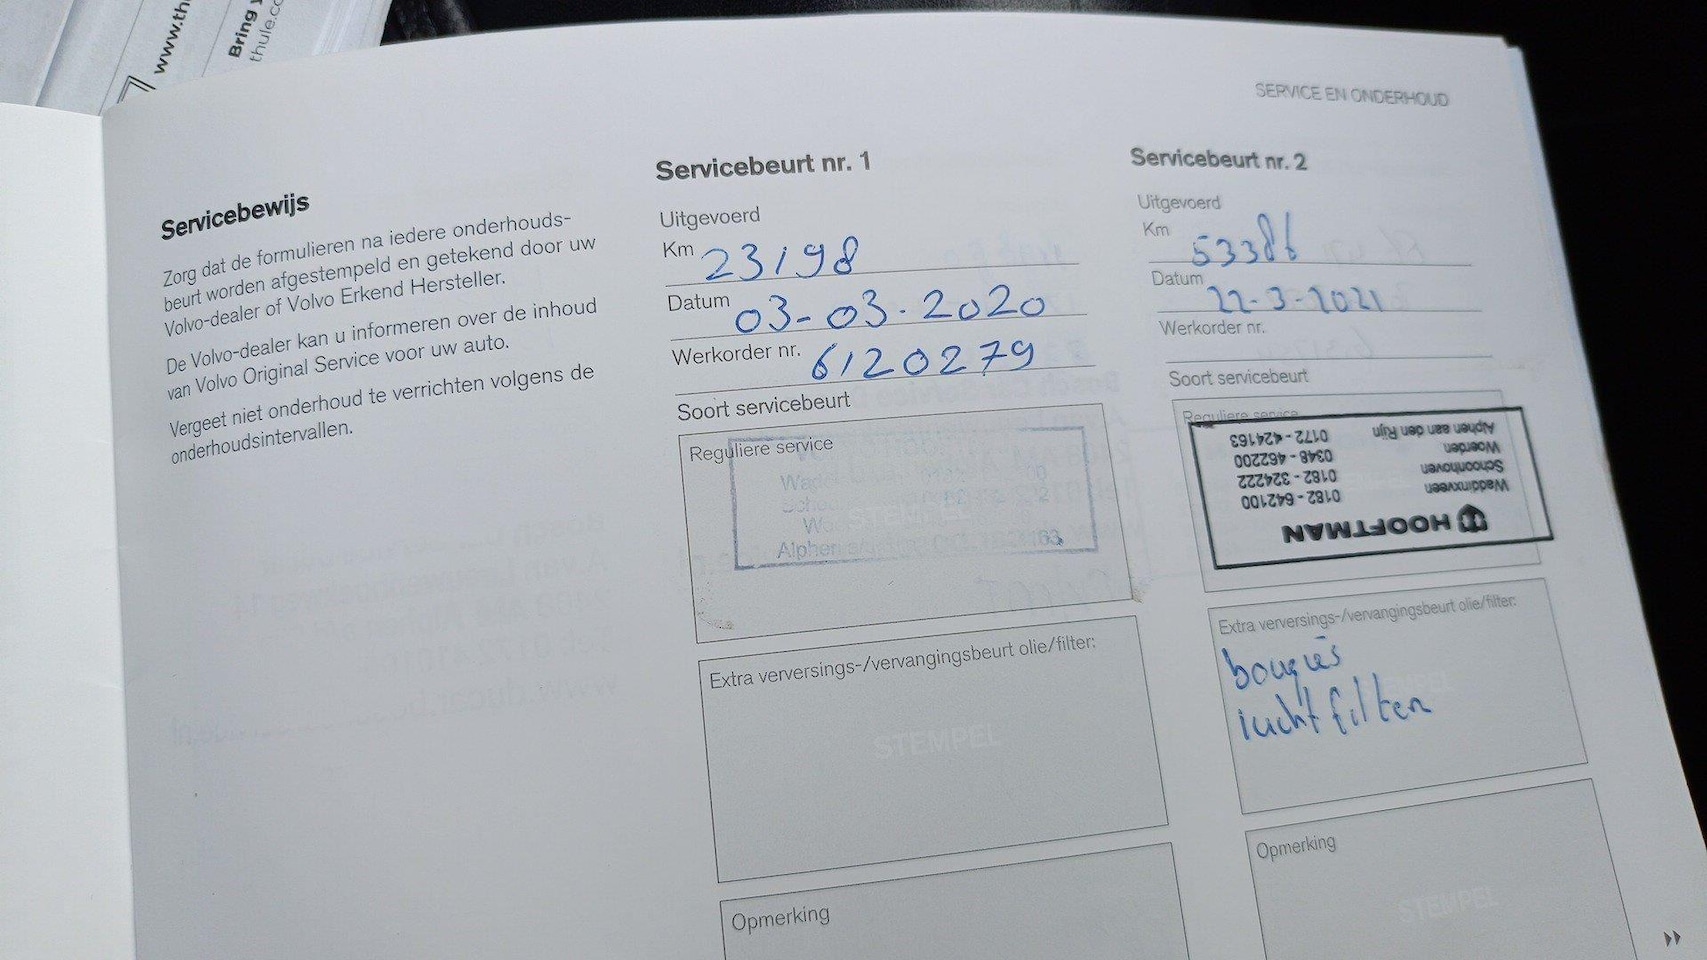 www.th
Bring y
thule.co
SERVICE EN ONDERHOUD
Servicebewijs
Zorg dat de formulieren na iedere onderhouds-
beurt worden afgestempeld en getekend door uw
Volvo-dealer of Volvo Erkend Hersteller.
De Volvo-dealer kan u informeren over de inhoud
van Volvo Original Service voor uw auto.
Vergeet niet onderhoud te verrichten volgens de
onderhoudsintervallen.
Servicebeurt nr. 1
Uitgevoerd
Km 23198
Datum 03-03.2020
Werkorder nr. 6120279
Soort servicebeurt
Reguliere service
STEMPEL
Alphen
Extra verversings-/vervangingsbeurt olie/filter:
STEMPEL
Opmerking
Servicebeurt nr. 2
Uitgevoerd
Km 53386
Datum 22-3-2021
Werkorder nr.
Soort servicebeurt
Reguliere service
HOOFTMAN
Waddinxveen 0182 - 642100
Schoonhoven 0182 - 324222
Woerden 0348 - 462200
Alphen aan den Rijn 0172 - 424163
Extra verversings-/vervangingsbeurt olie/filter:
bougies
luchtfilter
Opmerking
STEMPEL